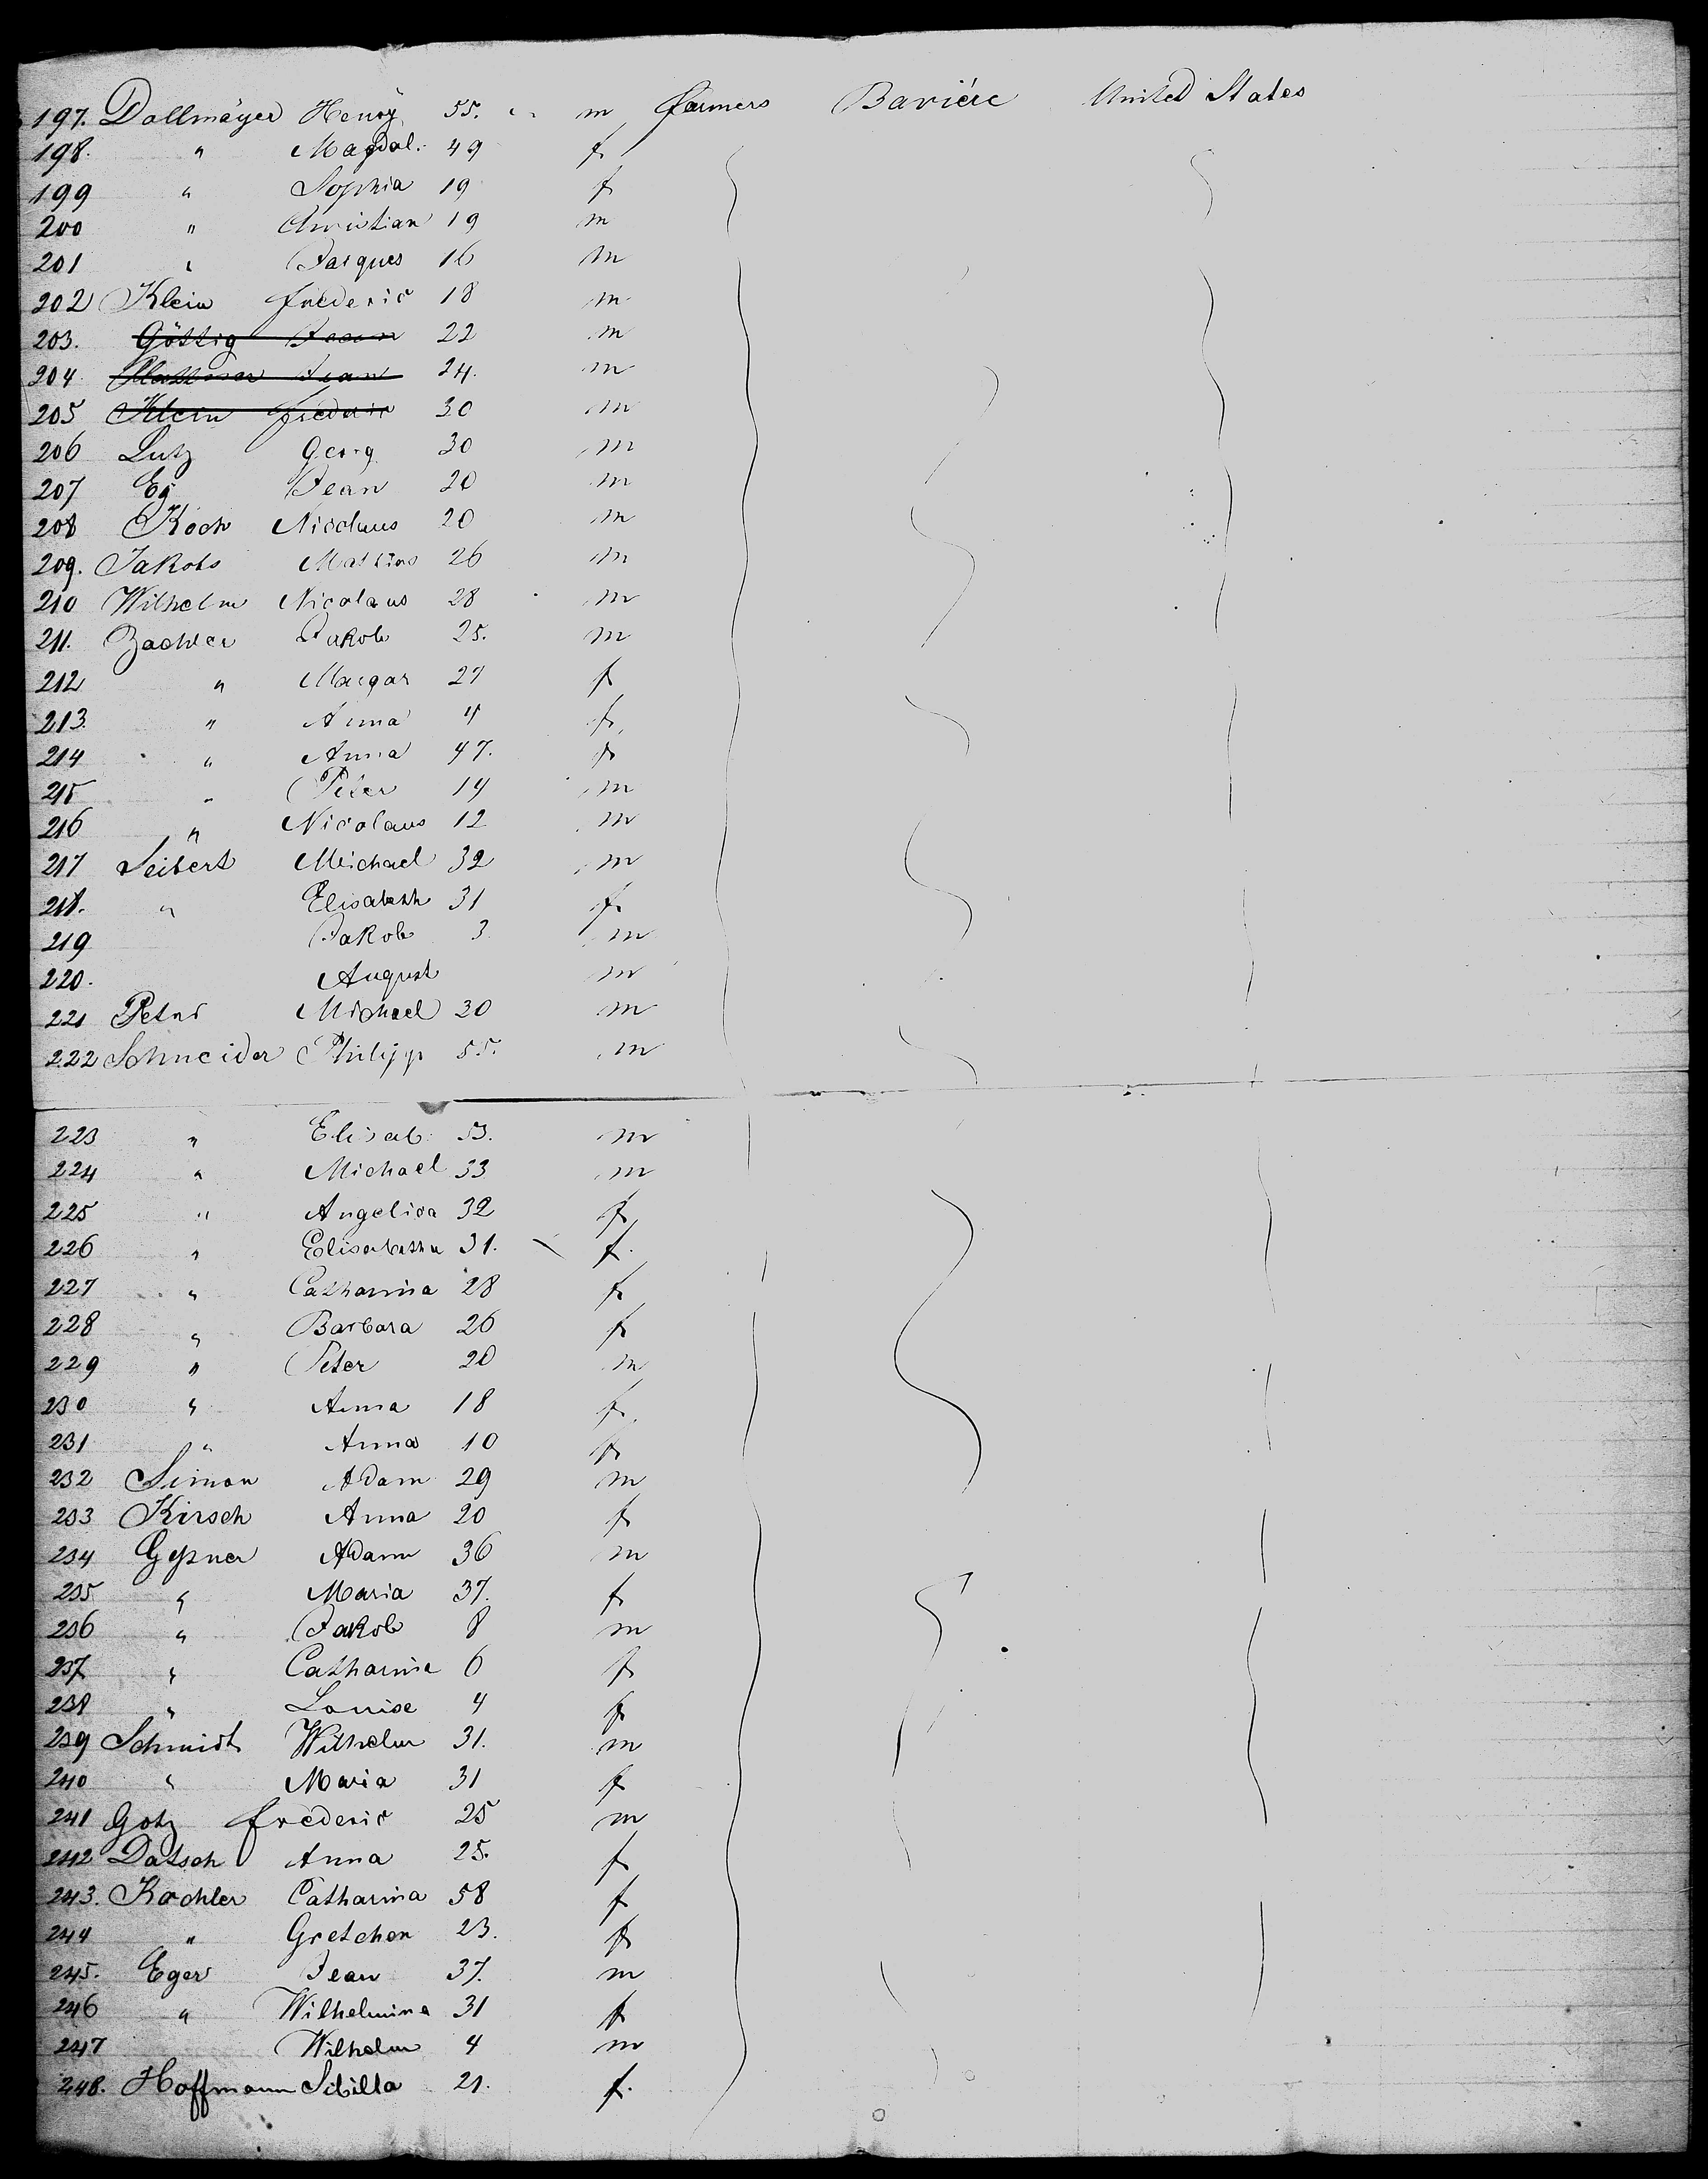 197. Dallmäyer Henry 55. m farmers Baviére United States
198. " Magdal. 49 f
199 " Sophia 19 f
200 " Christian 19 m
201 " Jacques 16 m
202 Klein frederic 18 m
203. Göttig Jean 22 m
204 Jean 24. m
205 Klein frederic 30 m
206 Lutz Georg 30 m
207 Eg Jean 20 m
208 Koch Nicolaus 20 m
209. Jakobs Mathias 26 m
210 Wilhelm Nicolaus 28 m
211. Jakob 25. m
212 " Margar 27 f
213. " Anna 4 f
214 " Anna 47. f
215 " Peter 14 m
216 " Nicolaus 12 m
217 Seibert Michael 32 m
218. " Elisabeth 31 f
219 Jakob 3 m
220. August m
221 Petri Michael 30 m
222 Schneider Philipp 55. m
223 " Elisab. 53. m
224 " Michael 33 m
225 " Angelica 32 f
226 " Elisabetha 31. f.
227 " Catharina 28 f
228 " Barbara 26 f
229 " Peter 20 m
230 " Anna 18 f
231 " Anna 10 f
232 Simon Adam 29 m
233 Kirsch Anna 20 f
234 Adam 36 m
235 " Maria 37. f
236 " Jakob 8 m
237 " Catharina 6 f
238 " Louise 4 f
239 Schmidt Wilhelm 31. m
240 " Maria 31 f
241 Gotz frederic 25 m
242 Datsch Anna 25. f
243. Kochler Catharina 58 f
244 " Gretchen 23. f
245. Eger Jean 37. m
246 " Wilhelmine 31 f
247 Wilhelm 4 m
248. Hoffmann Sibilla 21. f.